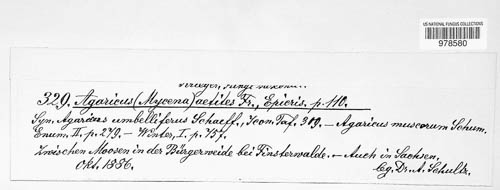 US NATIONAL FUNGUS COLLECTIONS
978580
329. Agaricus (Mycena) aetites Fr., Epicris. p. 110.
Syn. Agaricus umbelliferus Schaeff., Icon. Taf. 309. – Agaricus muscorum Schum.
Enum. II, p. 279. – Winter, I. p. 757.
Zwischen Moosen in der Bürgerweide bei Finsterwalde. – Auch in Sachsen.
Okt. 1886. leg. Dr. A. Schultz.